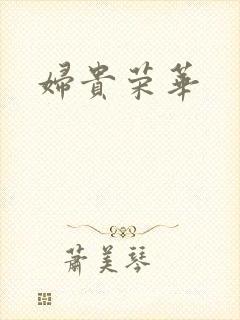 婦貴荣華
蕭美琴